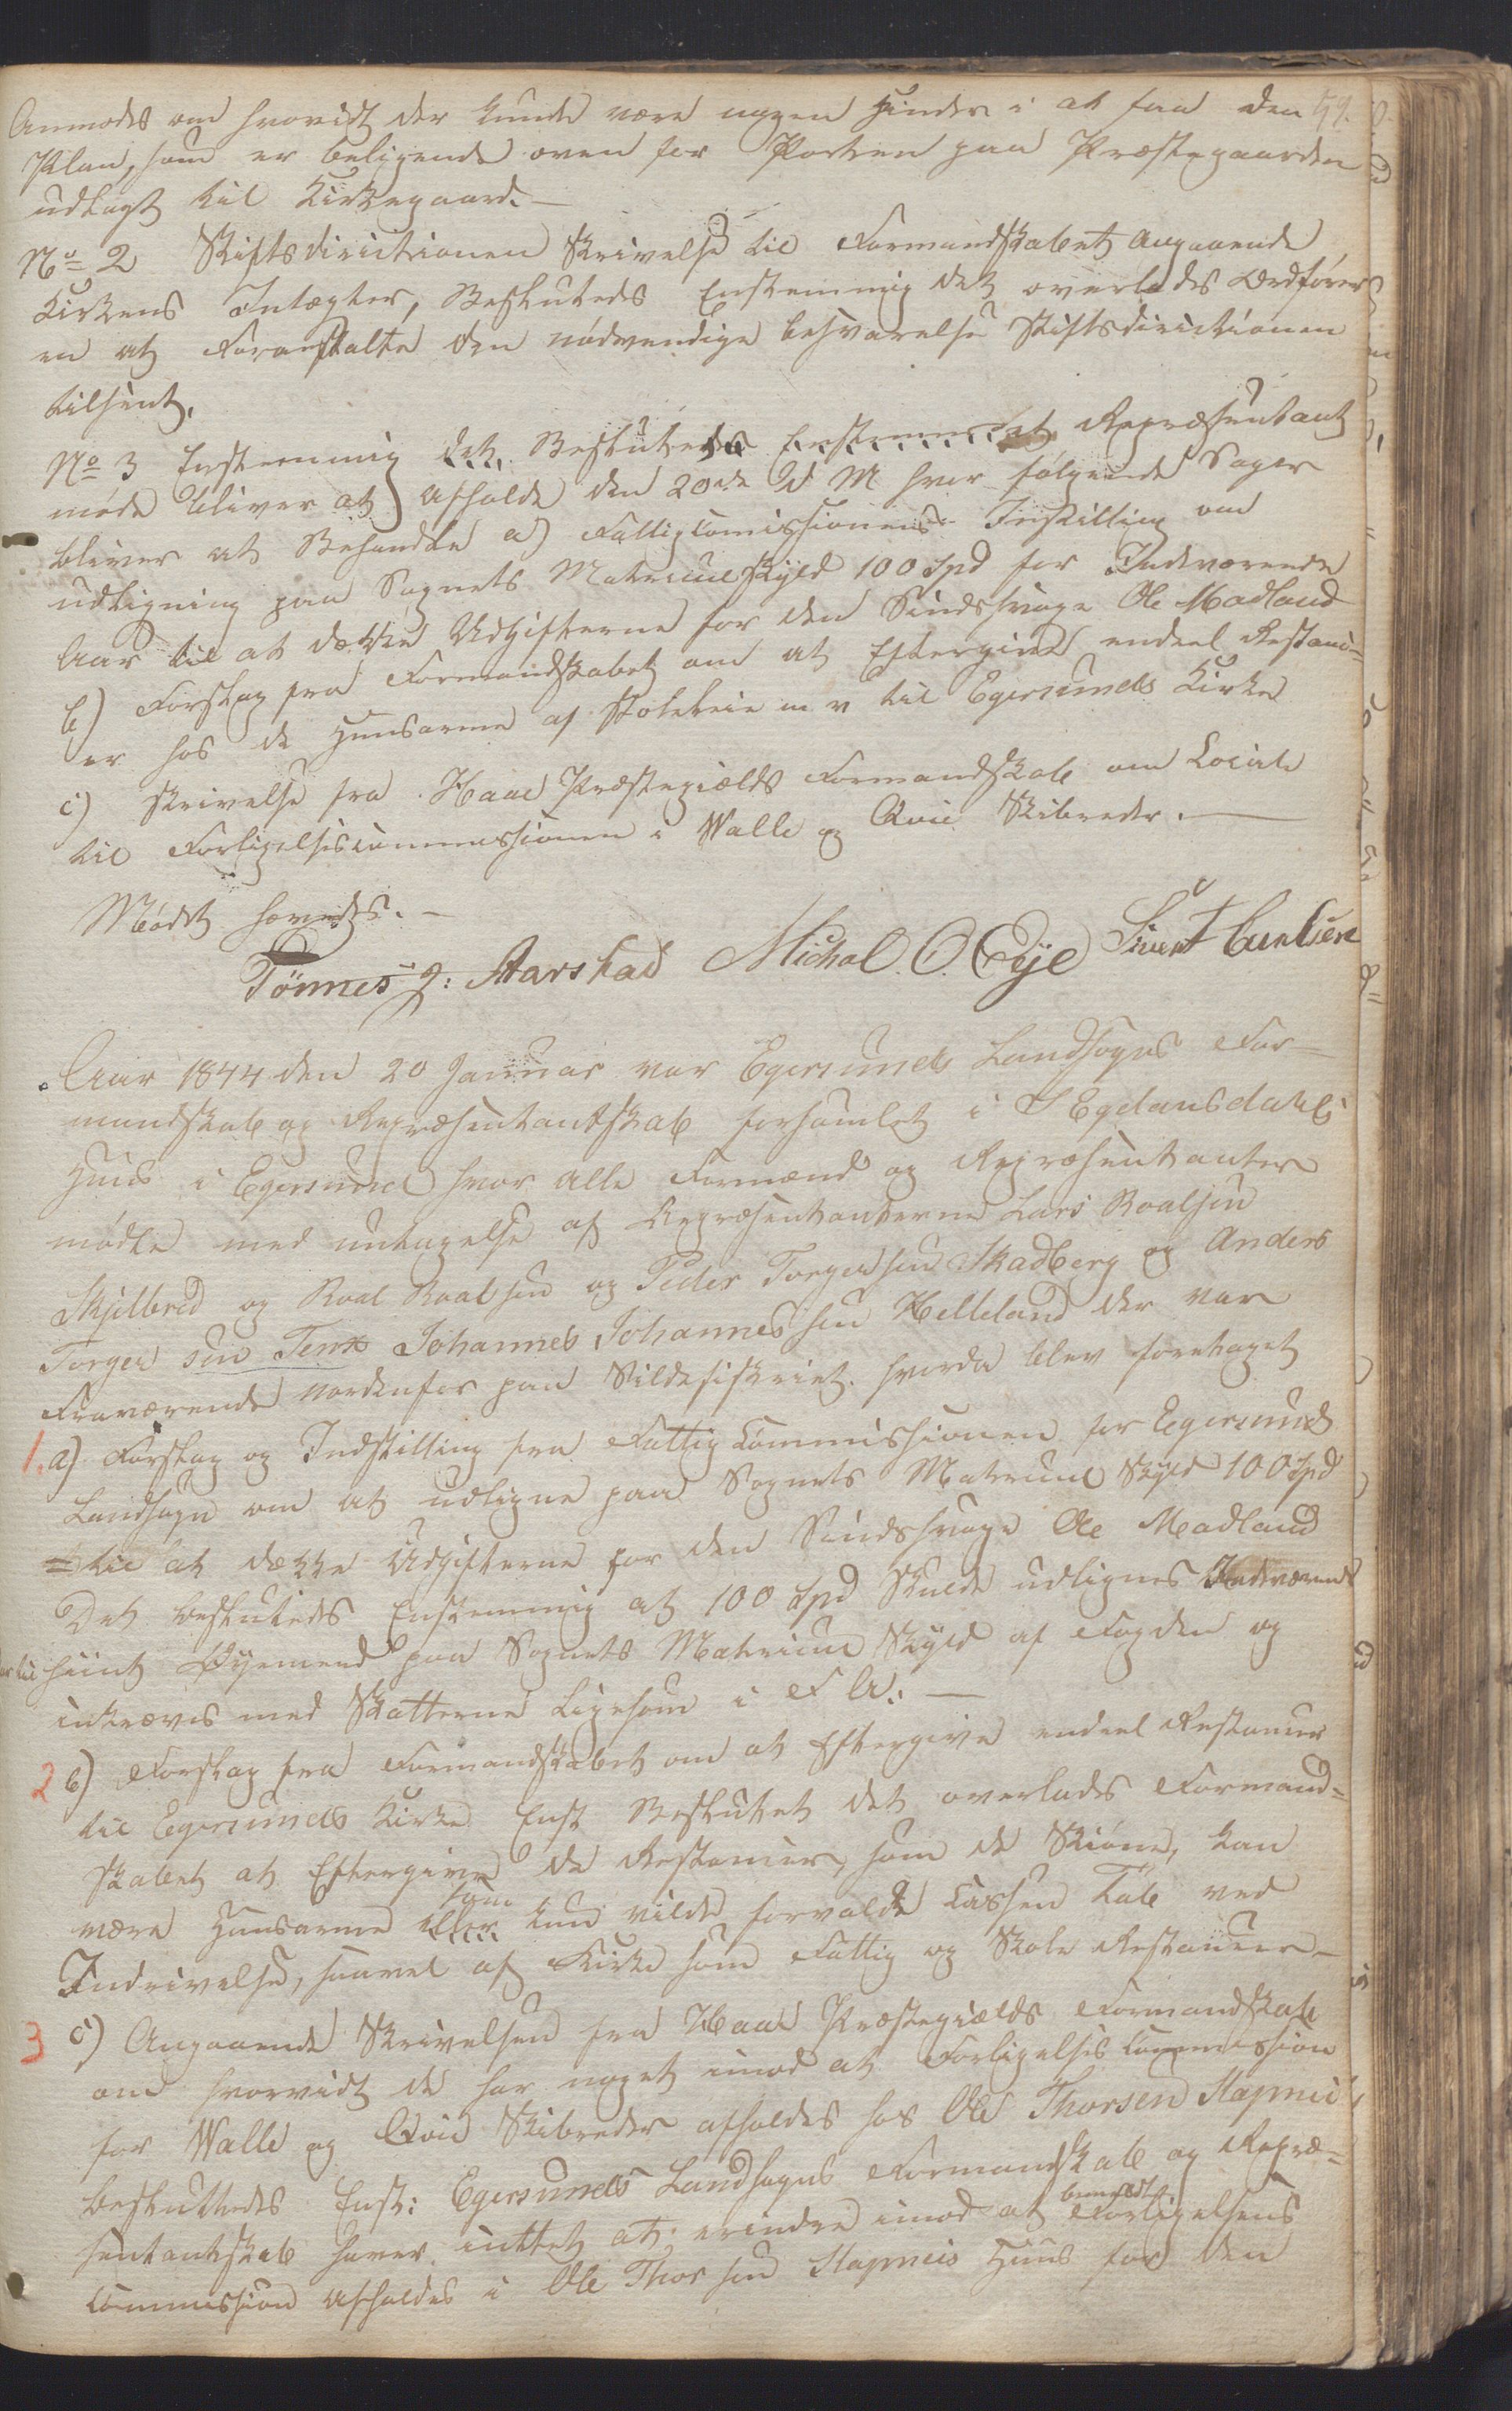 Anmodes om hvorvidt der kunde være nogen Hinder i at faa den 59.
Plan, som er beligende oven for Porten paa Præstegaarden
udlagt til Kirkegaard. —
No 2 Stiftsdirictionen Skrivelse til Formandskabet angaaende
Kirkens Intægter, Beslutedes Enstemmig det overlades Ordfører
en at Foranstalte den nødvendige besvarelse Stiftsdirictionen
tilsent.
No 3 Enstemmig det Beslutedes Enstemmig at Repræsentant
møde bliver at Afholde den 20de d M hvor følgende Sager
bliver at Behandle a) Fattigcomissionens Instilling om
udligning paa Sognets Matriculskyld 100 Spd for Indværende
Aar til at dække Udgifterne for den Sindssvage Ole Madland
b) Forslag fra Formandskabet om at Eftergive endeel Restanc=
er hos de Huusarme af Stoleleie m v til Egersunds Kirke
c) Skrivelse fra Haae Præstegiælds Formandskab om Locale
til Forligelsiscommissionen i Walle og Qvie Skibreder. —
Mødet hævedes. —
Tönnes J: Aarstad Michal. O. Eÿe Sivert Berntsen
Aar 1844 den 20 Januar var Egersunds Landsogns For-
mandskab og Repræsentantskab forsamlet i S Egelandsdahls
Huus i Egersund hvor alle Formænd og Repræsentanter
mødte med untagelse af Repræsentanterne Lars Roalsen
Skjelbred og Roal Roalsen og Peder Torgersen Skadberg og Anders
Torger sen Johannes Johannessen Helleland der var
Fraværende nordenfor paa Sildefiskeriet. hvorda blev foretaget
1. a) Forslag og Indstilling fra Fattig Commissionen for Egersunds
Landsogn om at udligne paa Sognets Matricul Skyld 100 Spd
til at dække Udgifterne for den Sindssvage Ole Madland
Det besluttedes Enstemmig at 100 Spd Skulde udlignes Indværende
Aar til hiint Øyemed paa Sognets Matricul Skyld af Fogden og
inkræves med Skatterne Ligesom i F A. —
2 b) Forslag fra Formandskabet om at Eftergive endeel Restancer
til Egersunds Kirke Enst Beslutet det overlades Formand=
skabet at Eftergive de Restancer, som de Skiøne, kan
være Huusarme eller som kun vilde forvolde Cassen Tab ved
Indrivelse, saavel af Kirke som Fattig og Skole Restancer —
3 c) Angaaende Skrivelsen fra Haae Præstegiælds Formandskab
om hvorvidt de har noget imod at Forligelsis Commission
for Walle og Qvie Skibreder afholdes hos Ole Thorsen Stapnes
besluttedes Enst: Egersunds Landsogns Formandskab og Repræ=
sentantskab haver inttet at erindre imod at bemeldt Forligelsens
Commission afholdes i Ole Thorsen Stapneis Huus for den